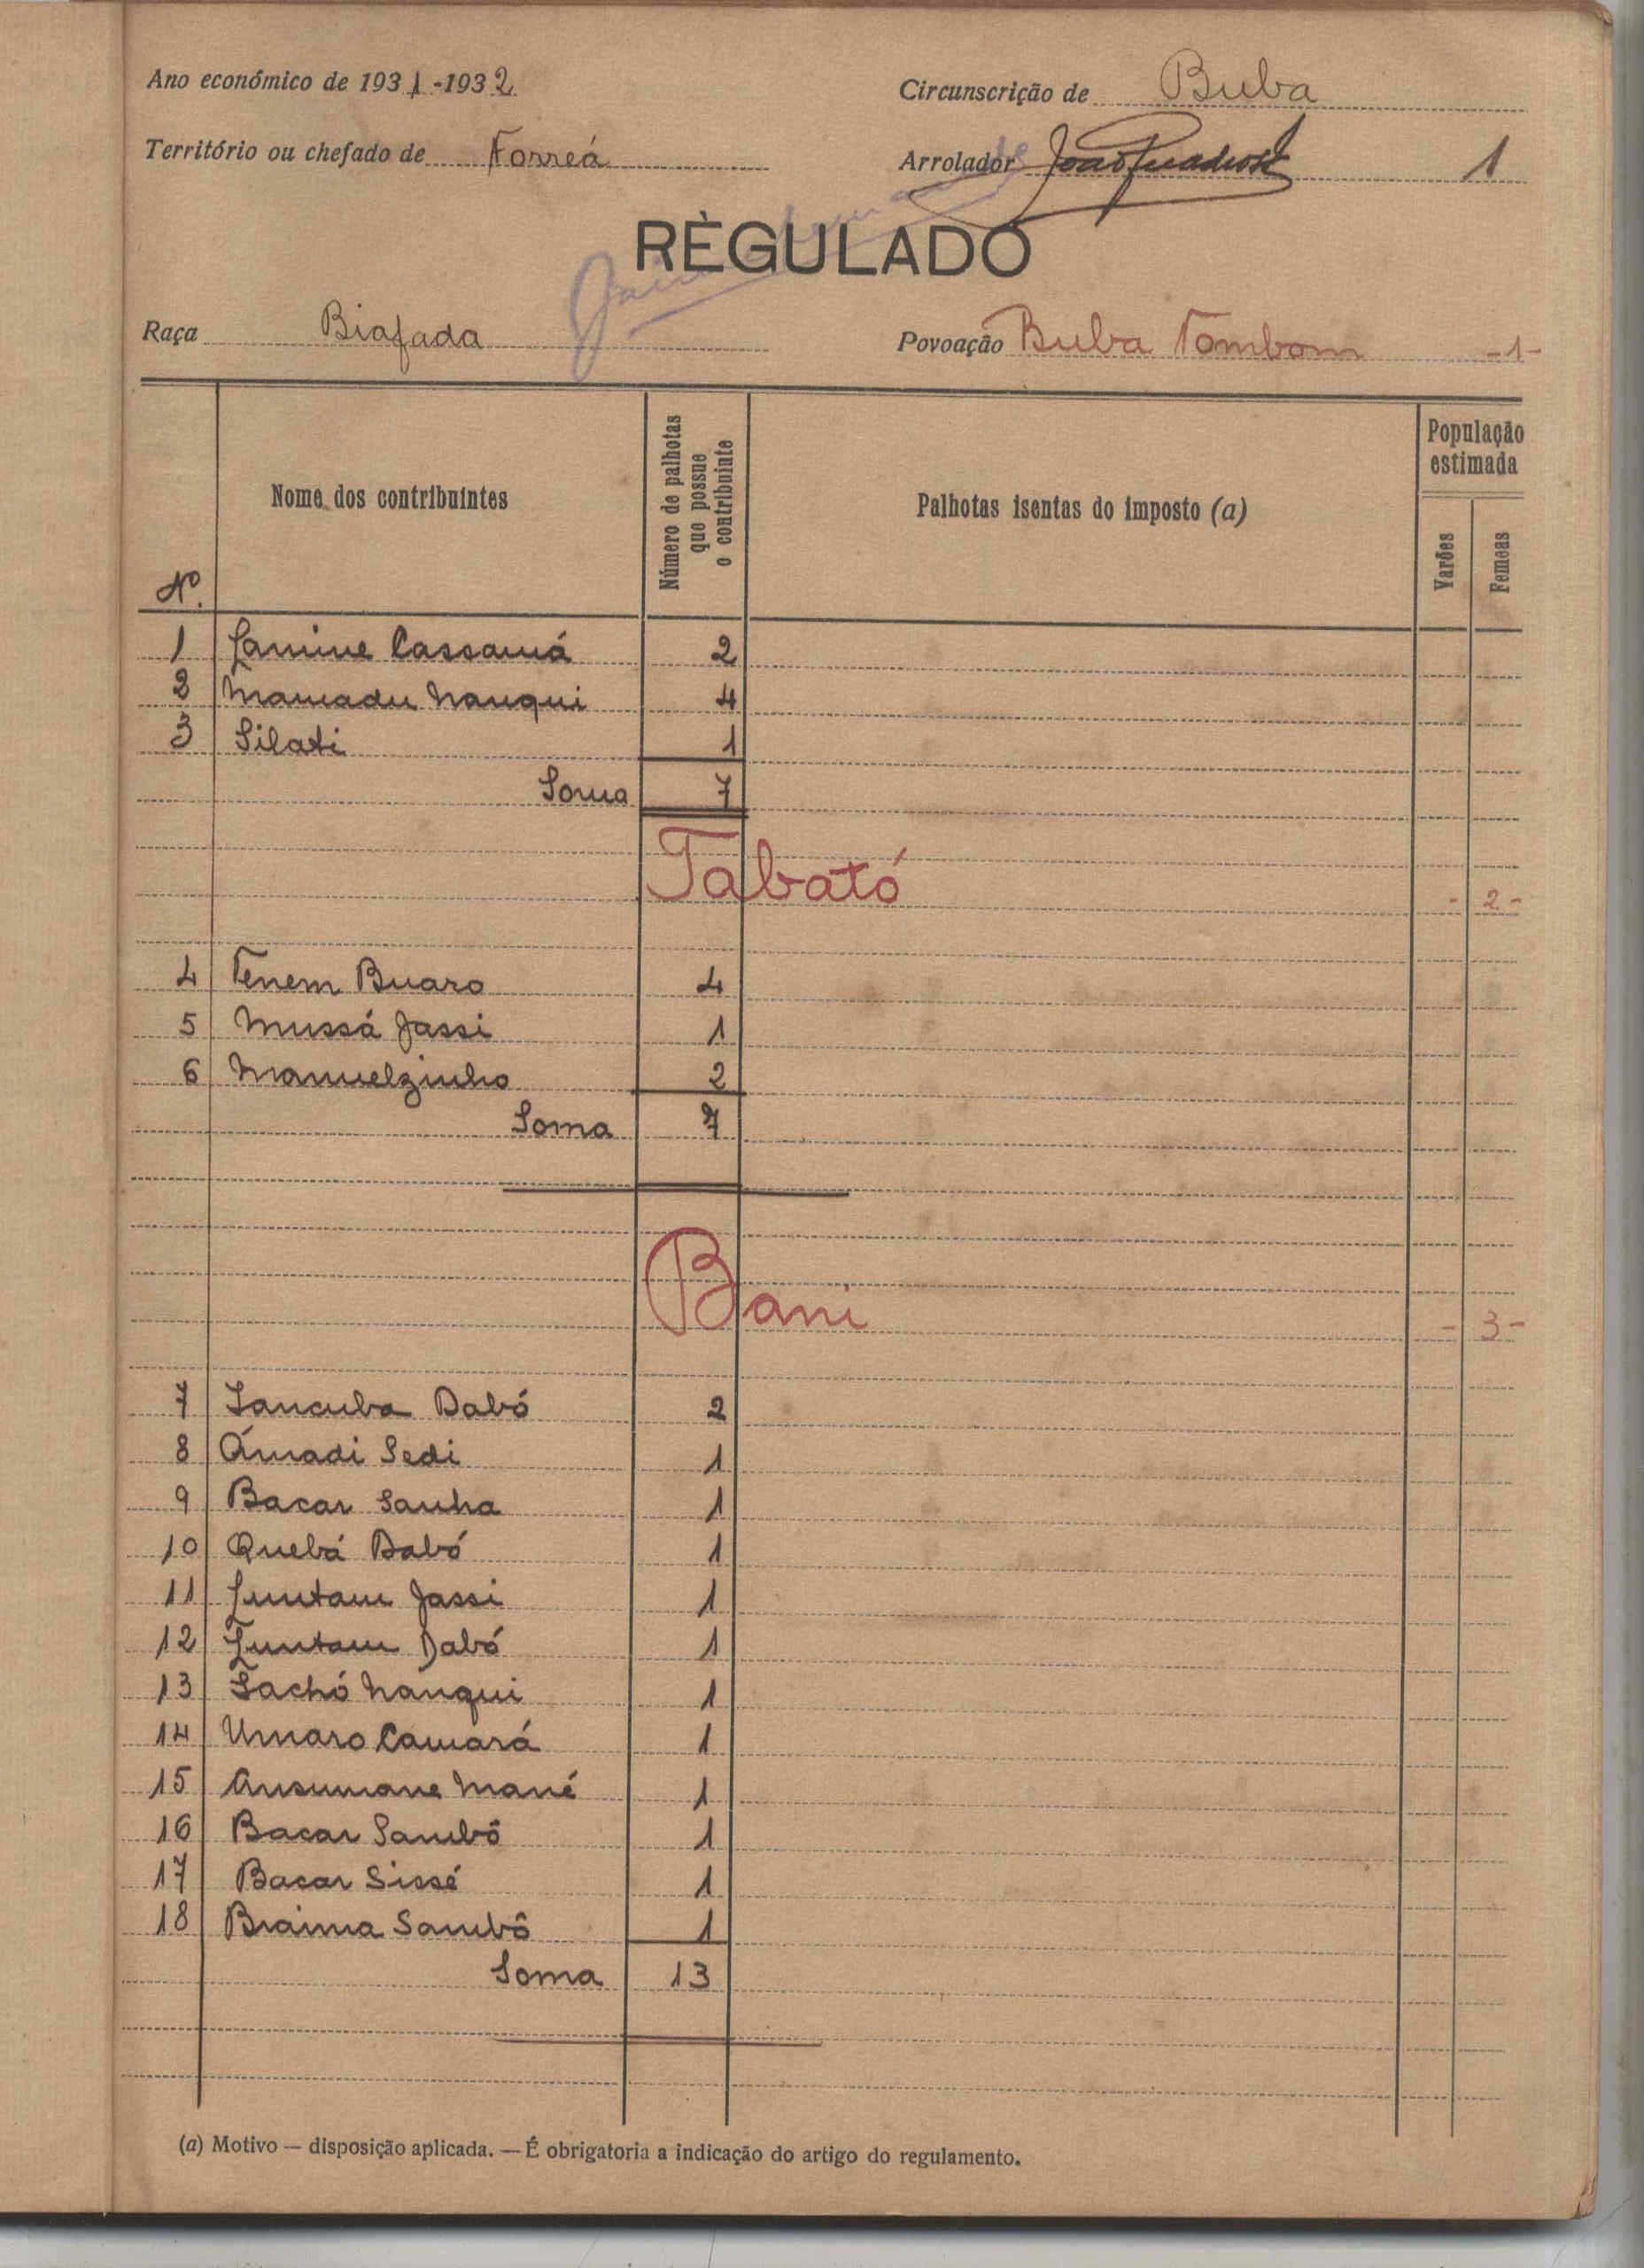 Ano económico de 1931-1932
Circunscrição de Buba
Território ou chefado de Forreá
Arrolador João 1
RÈGULADO
Raça Biafada
Povoação Buba Tombom -1-
Nº.
Nome dos contribuintes
Número de palhotas que possue o contribuinte
Palhotas isentas do imposto (a)
População estimada
Varões
Femeas
1 Lamine Cassamá 2
2 Mamadu Nanqui 4
3 Silati 1
Soma 7
Tabató - 2 -
4 Tenem Buaro 4
5 Mussá Jassi 1
6 Manuelzinho 2
Soma 7
Bani - 3 -
7 Sancuba Dabó 2
8 Ámadi Sedi 1
9 Bacar Sanha 1
10 Quebá Dabó 1
11 Luntam Jassi 1
12 Luntam Dabó 1
13 Sachó Nanqui 1
14 Umaro Camará 1
15 Ansumane Mané 1
16 Bacar Sambô 1
17 Bacar Sissé 1
18 Braima Sambô 1
Soma 13
(a) Motivo — disposição aplicada. — É obrigatoria a indicação do artigo do regulamento.